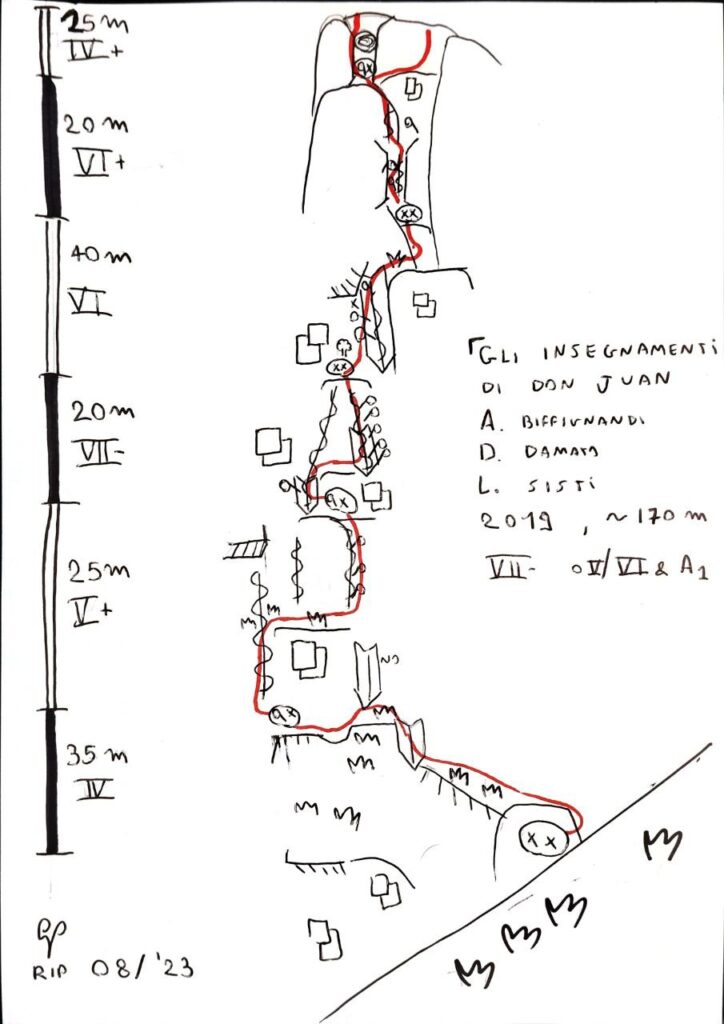 25 m
IV +
20 m
VI +
40 m
VI
20 m
VII-
25 m
V +
35 m
IV
GLI INSEGNAMENTI
DI DON JUAN
A. BIFFIGNANDI
D. DAMATA
L. SISTI
2019, ~170 m
VII- o V/VI & A1
NO
RIP 08/'23